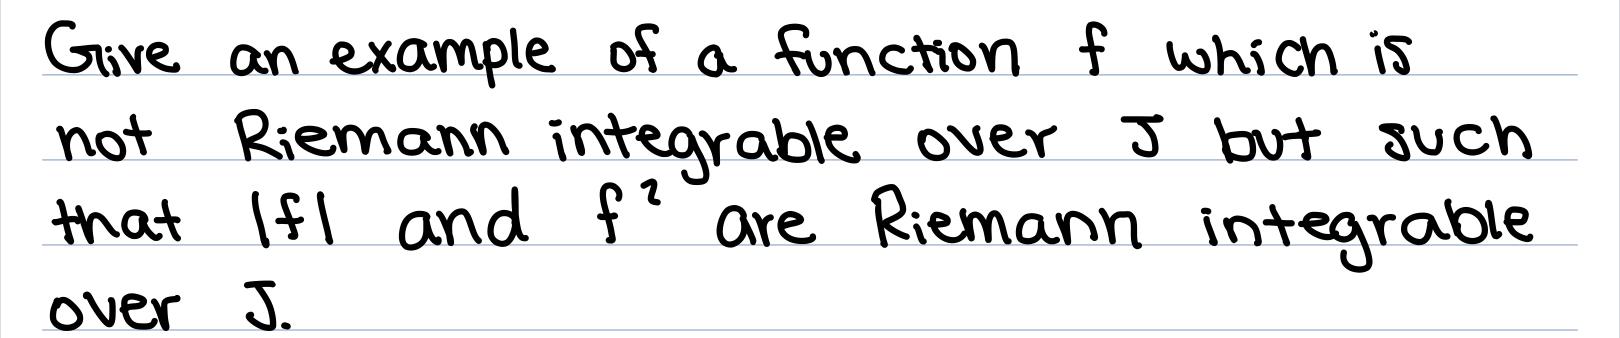 Give an example of a function f which is
not Riemann integrable over J but such
that |f| and f² are Riemann integrable
over J.